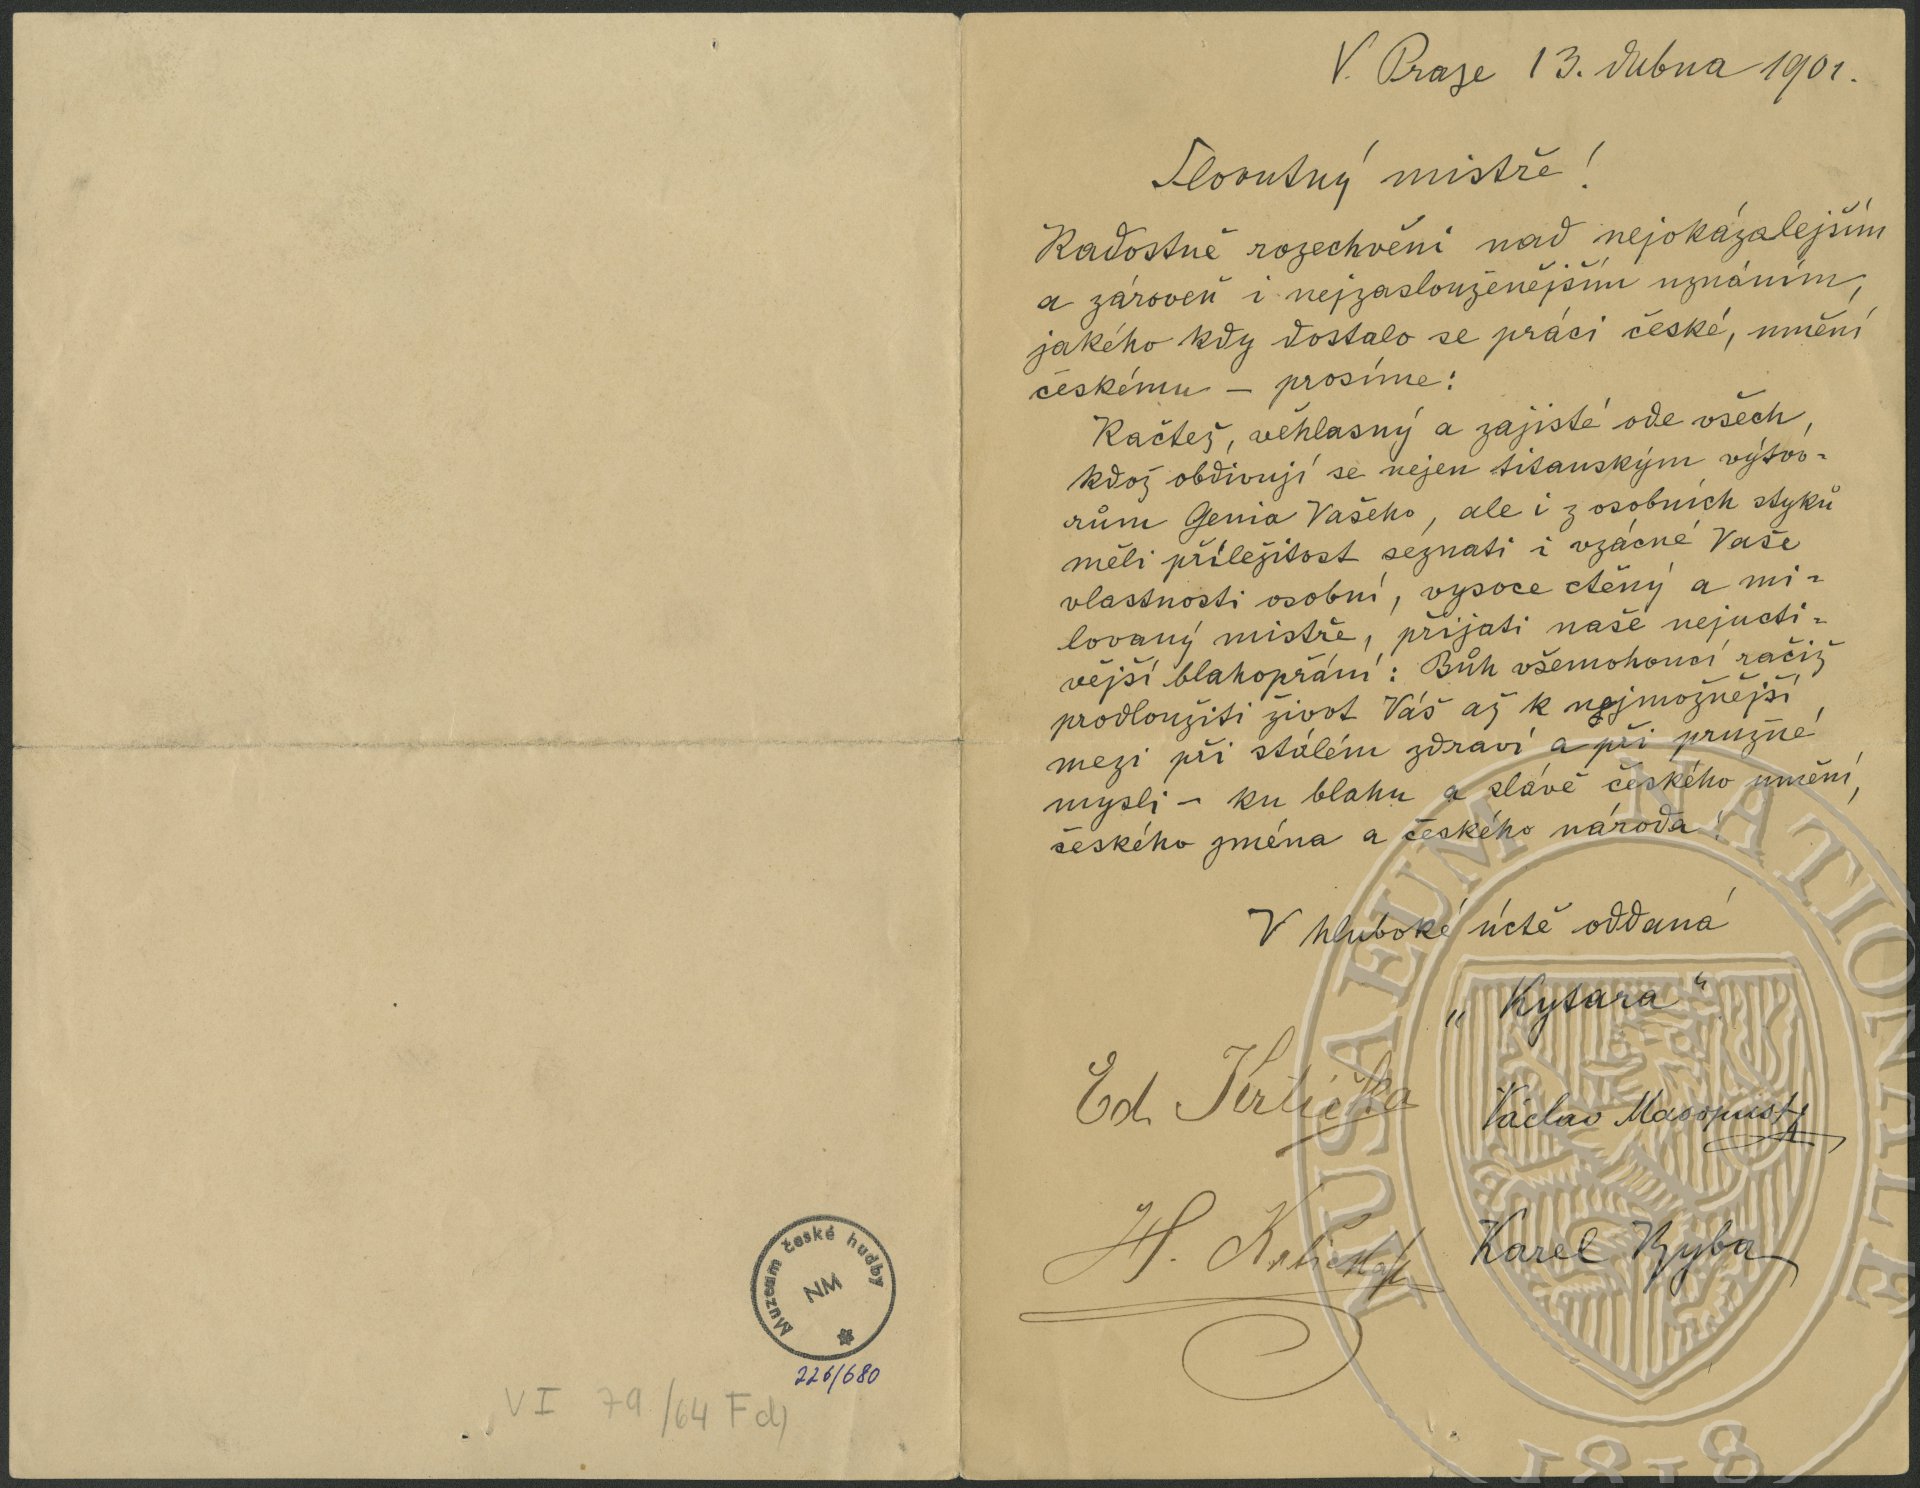 V. Praze 13. dubna 1901.
Slovutný mistře!
Radostně rozechvěni nad nejokázalejším
a zároveň i nejzaslouženějším uznáním,
jakého kdy dostalo se práci české, umění
českému – prosíme:
Račtež, věhlasný a zajisté ode všech,
kdož obdivují se nejen titanským výtvo-
rům Genia Vašeho, ale i z osobních styků
měli příležitost seznati i vzácné Vaše
vlastnosti osobní, vysoce ctěný a mi-
lovaný mistře, přijati naše nejucti-
vější blahopřání: Bůh všemohoucí račiž
prodloužiti život Váš až k nejmožnější
mezi při stálém zdraví a při pružné
mysli – ku blahu a slávě českého umění,
českého jména a českého národa!
V hluboké úctě oddaná
„Kytara“
Ed. Krtička
Václav Masopust
H. Krtička
Karel Ryba
Muzeum české hudby
NM
226/680
VI 79/64 Fd)
MUSAEUM NATIONALE
1818